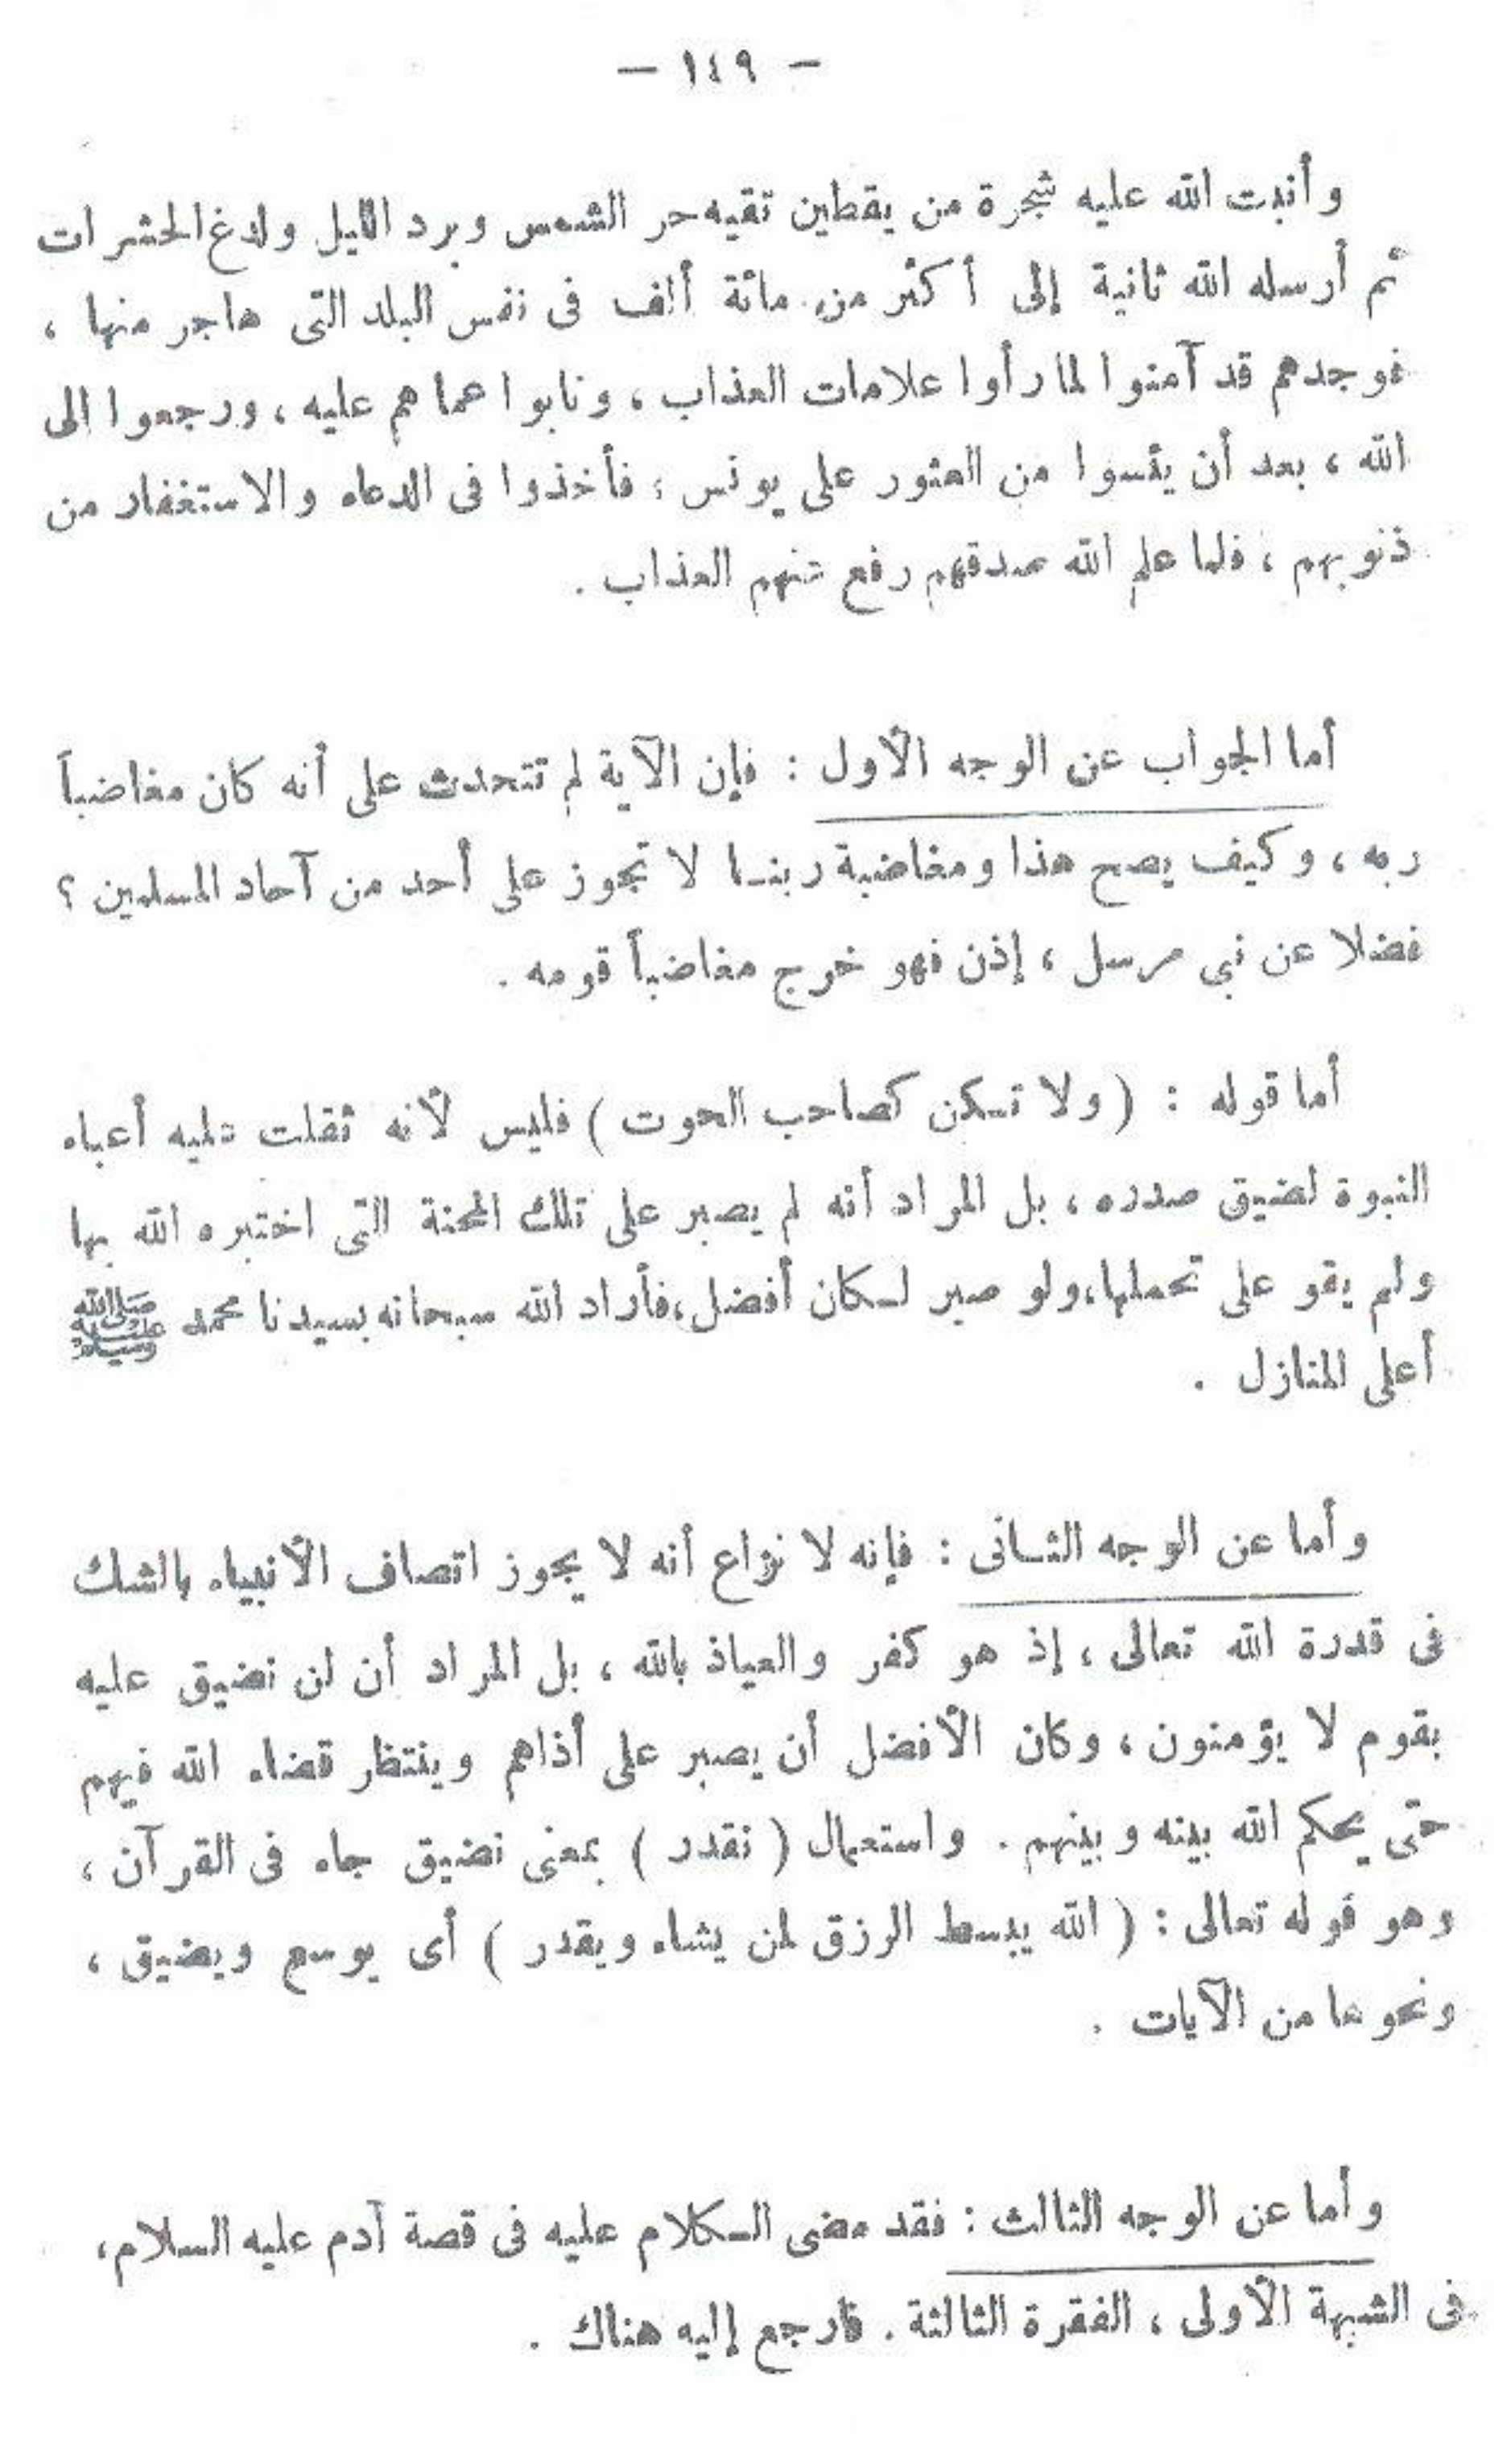 — ١٤٩ —
وأنبت الله عليه شجرة من يقطين تقيه حر الشمس وبرد الليل ولدغ الحشرات
ثم أرسله الله ثانية إلى أكثر من مائة ألف فى نفس البلد التى هاجر منها ،
فوجدهم قد آمنوا لما رأوا علامات العذاب ، وتابوا عما هم عليه ، ورجعوا إلى
الله ، بعد أن يئسوا من العثور على يونس ، فأخذوا فى الدعاء والاستغفار من
ذنوبهم ، فلما علم الله صدقهم رفع عنهم العذاب .
أما الجواب عن الوجه الأول : فإن الآية لم تتحدث على أنه كان مغاضباً
ربه ، وكيف يصح هذا ومغاضبة ربنا لا تجوز على أحد من آحاد المسلمين ؟
فضلا عن نبى مرسل ، إذن فهو خرج مغاضباً قومه .
أما قوله : ( ولا تكن كصاحب الحوت ) فليس لأنه ثقلت عليه أعباء
النبوة لضيق صدره ، بل المراد أنه لم يصبر على تلك المحنة التى اختبره الله بها
ولم يقو على تحملها ، ولو صبر لكان أفضل ، فأراد الله سبحانه بسيدنا محمد ﷺ
أعلى المنازل .
وأما عن الوجه الثانى : فإنه لا نزاع أنه لا يجوز اتصاف الأنبياء بالشك
فى قدرة الله تعالى ، إذ هو كفر والعياذ بالله ، بل المراد أن لن نضيق عليه
بقوم لا يؤمنون ، وكان الأفضل أن يصبر على أذاهم وينتظر قضاء الله فيهم
حتى يحكم الله بينه وبينهم . واستعمال ( نقدر ) بمعنى نضيق جاء فى القرآن ،
وهو قوله تعالى : ( الله يبسط الرزق لمن يشاء ويقدر ) أى يوسع ويضيق ،
ونحوها من الآيات .
وأما عن الوجه الثالث : فقد مضى الكلام عليه فى قصة آدم عليه السلام ،
فى الشبهة الأولى ، الفقرة الثالثة . فارجع إليه هناك .